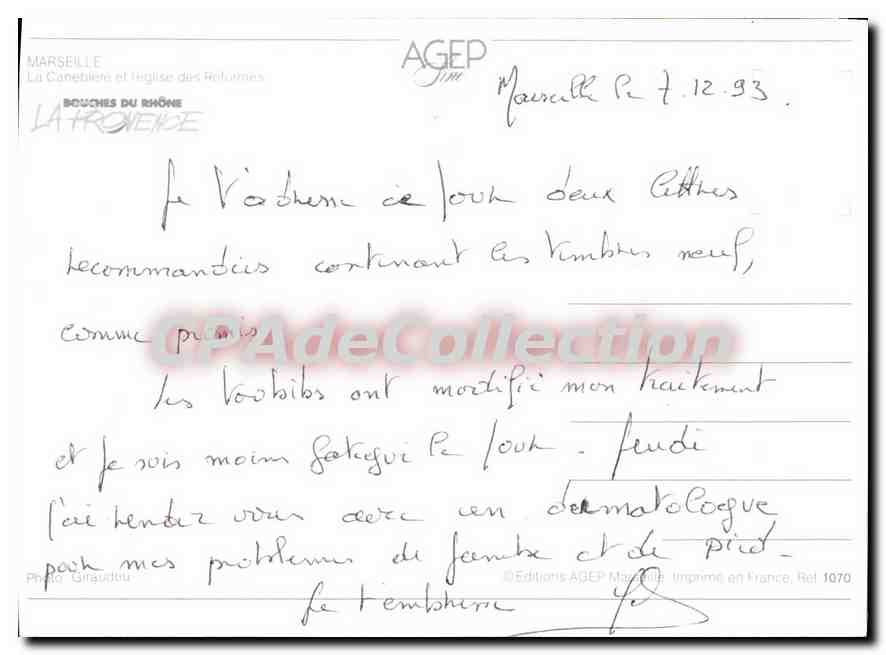 MARSEILLE
La Canebière et l'église des Réformés
BOUCHES DU RHÔNE
LA PROVENCE
AGEP
Marseille le 7.12.93.
Je t'adresse ce jour deux lettres
recommandées contenant les timbres neufs,
comme promis
CPAdeCollection
Les toubibs ont modifié mon traitement
et je suis moins fatigué le jour. Jeudi
j'ai rendez vous avec un dermatologue
pour mes problemes de jambe et de pied.
Photo : Giraudou
©Editions AGEP Marseille. Imprimé en France, Réf. 1070
Je t'embrasse